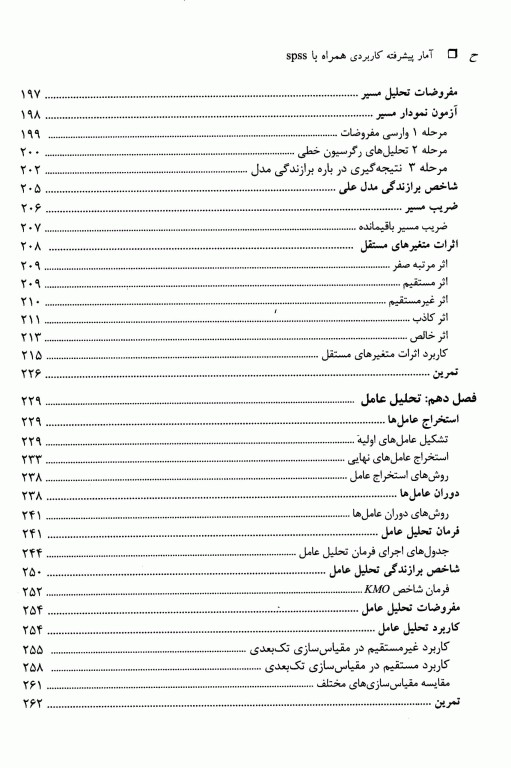 ح ❐ آمار پیشرفته کاربردی همراه با spss
مفروضات تحلیل مسیر ........ ۱۹۷
آزمون نمودار مسیر ........ ۱۹۸
مرحله ۱ وارسی مفروضات ........ ۱۹۹
مرحله ۲ تحلیل‌های رگرسیون خطی ........ ۲۰۰
مرحله ۳ نتیجه‌گیری در باره برازندگی مدل ........ ۲۰۲
شاخص برازندگی مدل علی ........ ۲۰۵
ضریب مسیر ........ ۲۰۶
ضریب مسیر باقیمانده ........ ۲۰۷
اثرات متغیرهای مستقل ........ ۲۰۸
اثر مرتبه صفر ........ ۲۰۹
اثر مستقیم ........ ۲۰۹
اثر غیرمستقیم ........ ۲۱۰
اثر کاذب ........ ۲۱۱
اثر خالص ........ ۲۱۳
کاربرد اثرات متغیرهای مستقل ........ ۲۱۵
تمرین ........ ۲۲۶
فصل دهم: تحلیل عامل ........ ۲۲۹
استخراج عامل‌ها ........ ۲۲۹
تشکیل عامل‌های اولیه ........ ۲۲۹
استخراج عامل‌های نهایی ........ ۲۳۳
روش‌های استخراج عامل ........ ۲۳۸
دوران عامل‌ها ........ ۲۳۸
روش‌های دوران عامل‌ها ........ ۲۴۱
فرمان تحلیل عامل ........ ۲۴۱
جدول‌های اجرای فرمان تحلیل عامل ........ ۲۴۴
شاخص برازندگی تحلیل عامل ........ ۲۵۰
فرمان شاخص KMO ........ ۲۵۲
مفروضات تحلیل عامل ........ ۲۵۴
کاربرد تحلیل عامل ........ ۲۵۴
کاربرد غیرمستقیم در مقیاس‌سازی تک‌بعدی ........ ۲۵۵
کاربرد مستقیم در مقیاس‌سازی تک‌بعدی ........ ۲۵۸
مقایسه مقیاس‌سازی‌های مختلف ........ ۲۶۱
تمرین ........ ۲۶۲